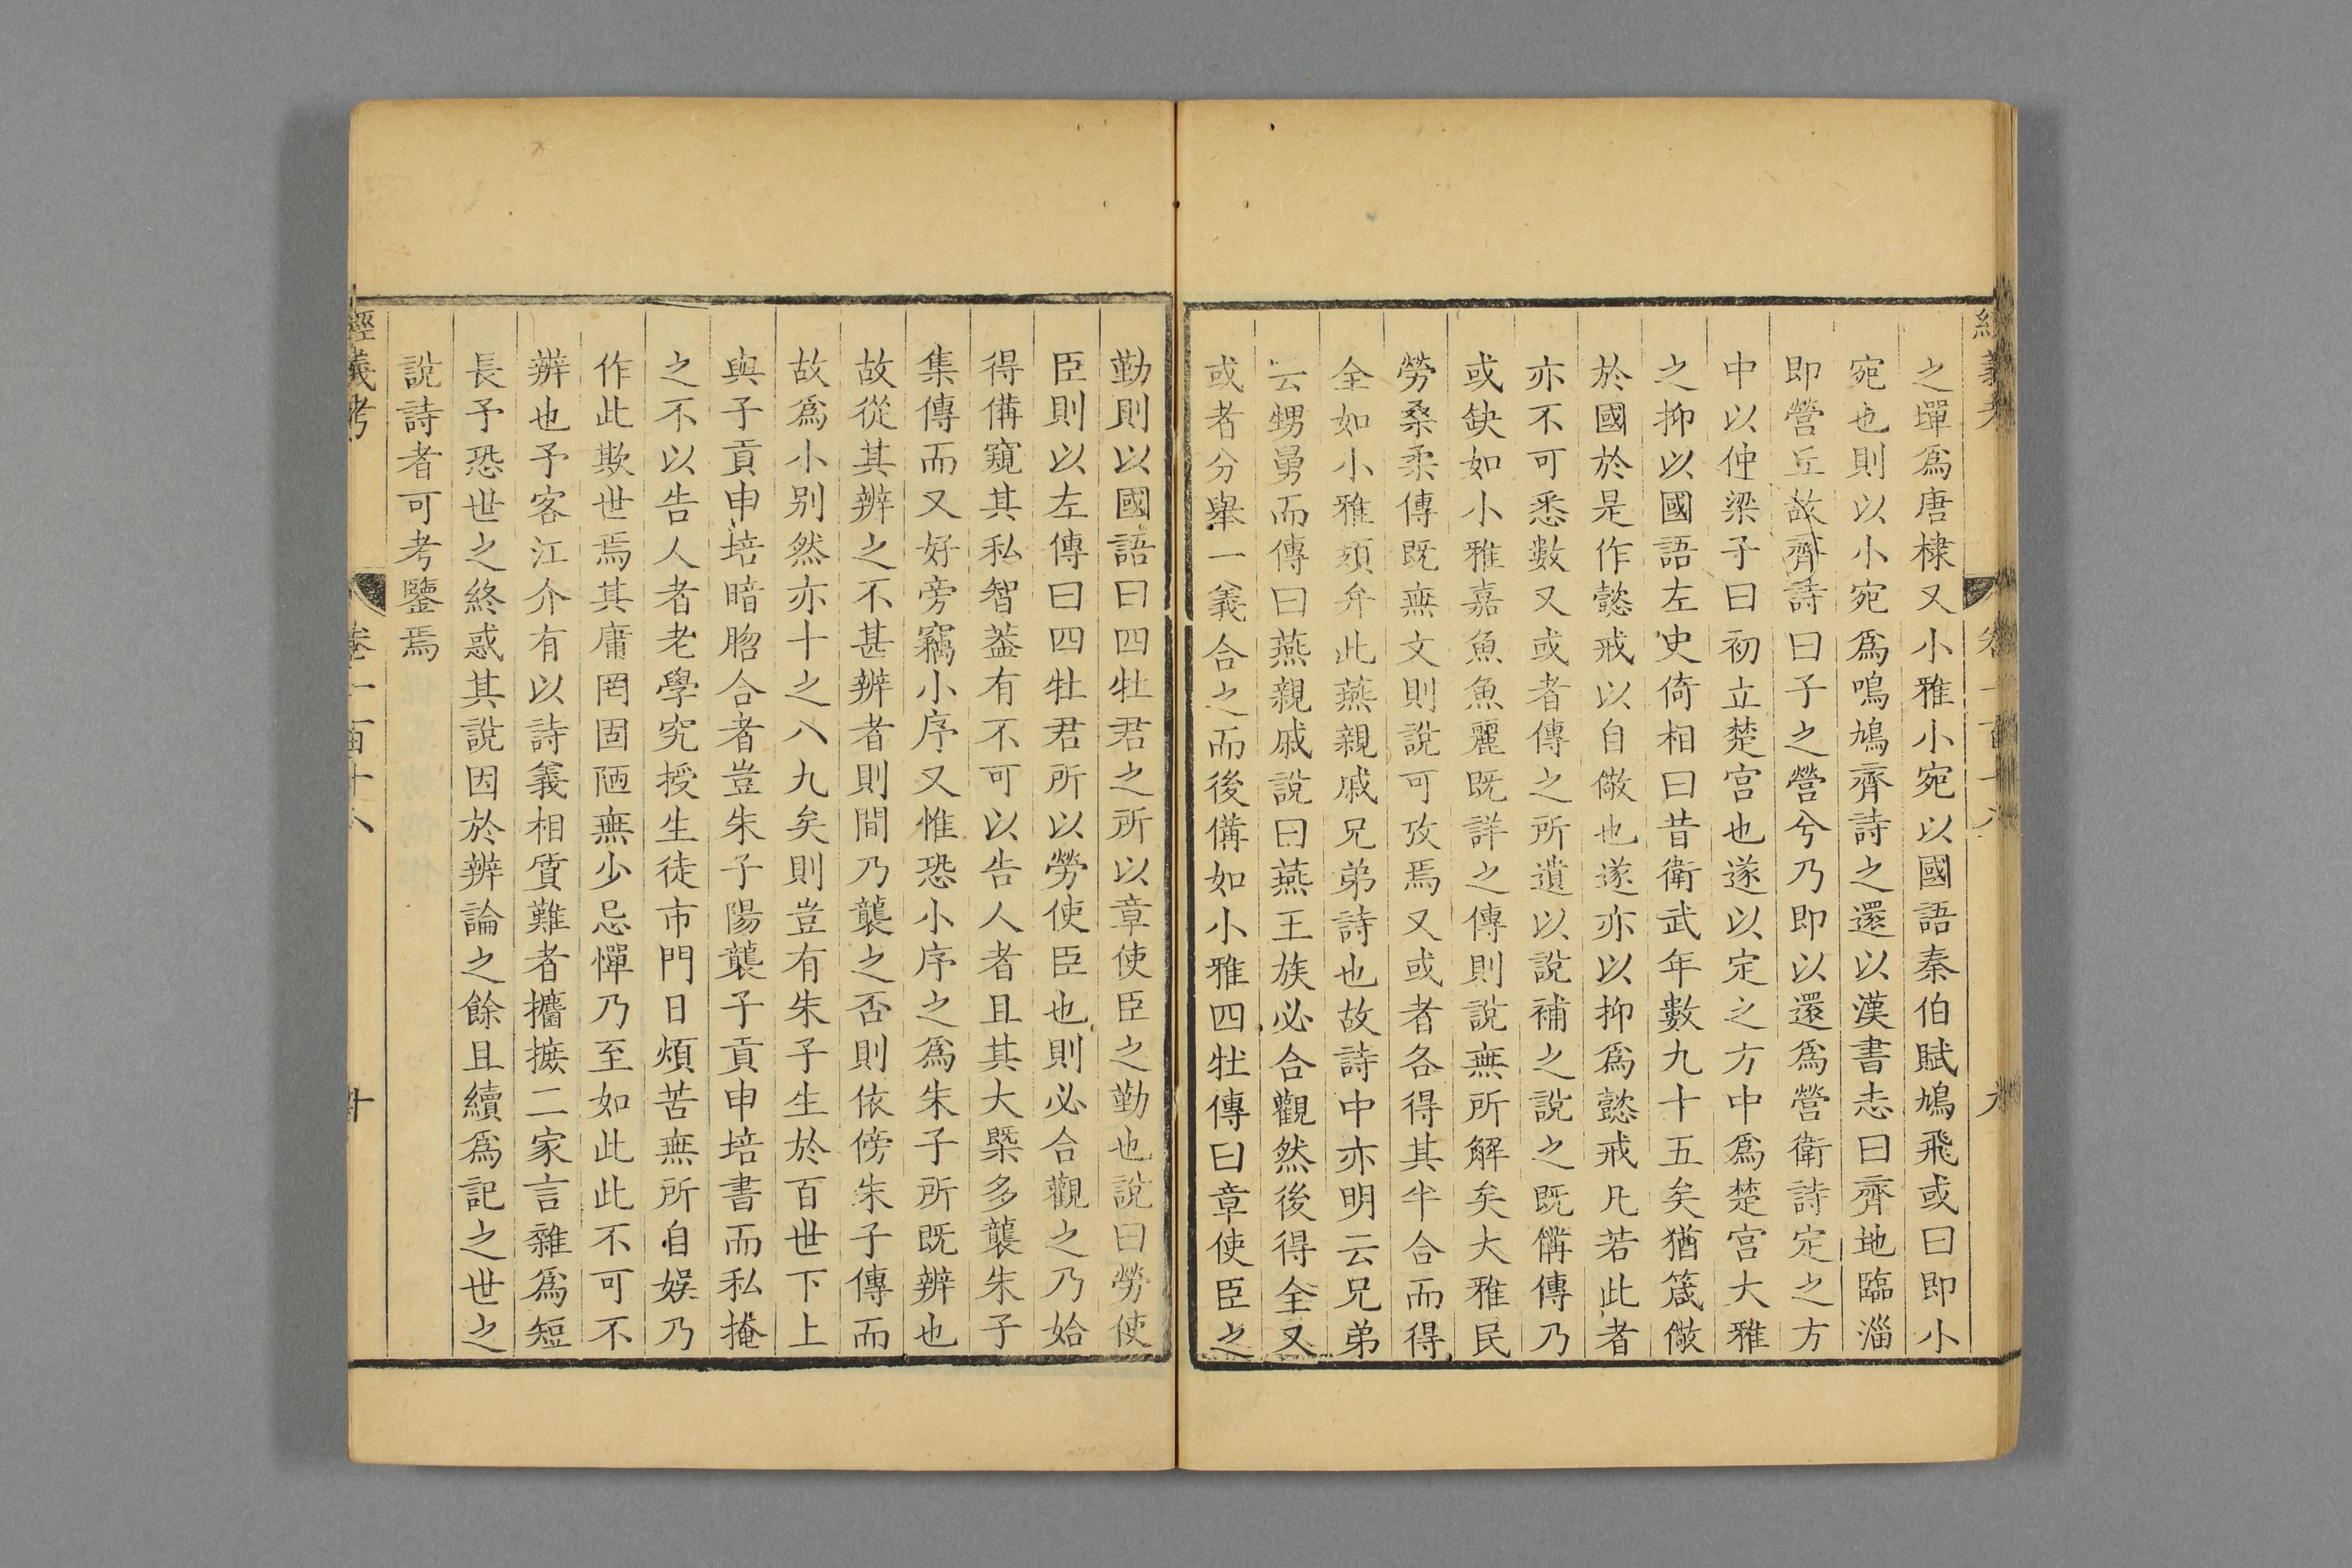 之墠爲唐棣又小雅小宛以國語秦伯賦鳩飛或曰即小
宛也則以小宛爲鳴鳩齊詩之還以漢書志曰齊地臨淄
即營丘故齊詩曰子之營兮乃即以還爲營衛詩定之方
中以仲梁子曰初立楚宮也遂以定之方中爲楚宮大雅
之抑以國語左史倚相曰昔衛武年數九十五矣猶箴儆
於國於是作懿戒以自儆也遂亦以抑爲懿戒凡若此者
亦不可悉數又或者傳之所遺以說補之說之既備傳乃
或缺如小雅嘉魚魚麗既詳之傳則說無所解矣大雅民
勞桑柔傳既無文則說可攷焉又或者各得其半合而得
全如小雅頍弁此燕親戚兄弟詩也故詩中亦明云兄弟
云甥舅而傳曰燕親戚說曰燕王族必合觀然後得全又
或者分舉一義合之而後備如小雅四牡傳曰章使臣之
勤則以國語曰四牡君之所以章使臣之勤也說曰勞使
臣則以左傳曰四牡君所以勞使臣也則必合觀之乃始
得備窺其私智葢有不可以告人者且其大槩多襲朱子
集傳而又好旁竊小序又惟恐小序之爲朱子所既辨也
故從其辨之不甚辨者則間乃襲之否則依傍朱子傳而
故爲小別然亦十之八九矣則豈有朱子生於百世下上
與子貢申培暗脗合者豈朱子陽襲子貢申培書而私掩
之不以告人者老學究授生徒市門日煩苦無所自娛乃
作此欺世焉其庸罔固陋無少忌憚乃至如此此不可不
辨也予客江介有以詩義相質難者攟摭二家言雜爲短
長予恐世之終惑其說因於辨論之餘且續爲記之世之
說詩者可考鑒焉
經義考 卷一百十八 十